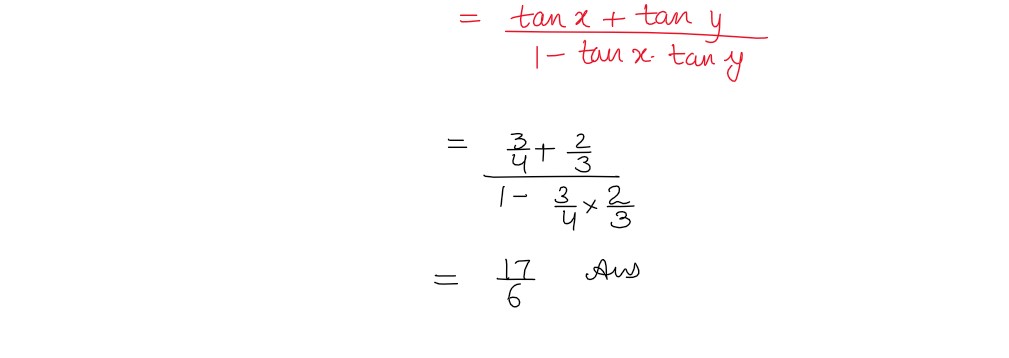 = tan x + tan y
1 - tan x. tan y
= 3/4 + 2/3
1 - 3/4 × 2/3
= 17/6 Ans